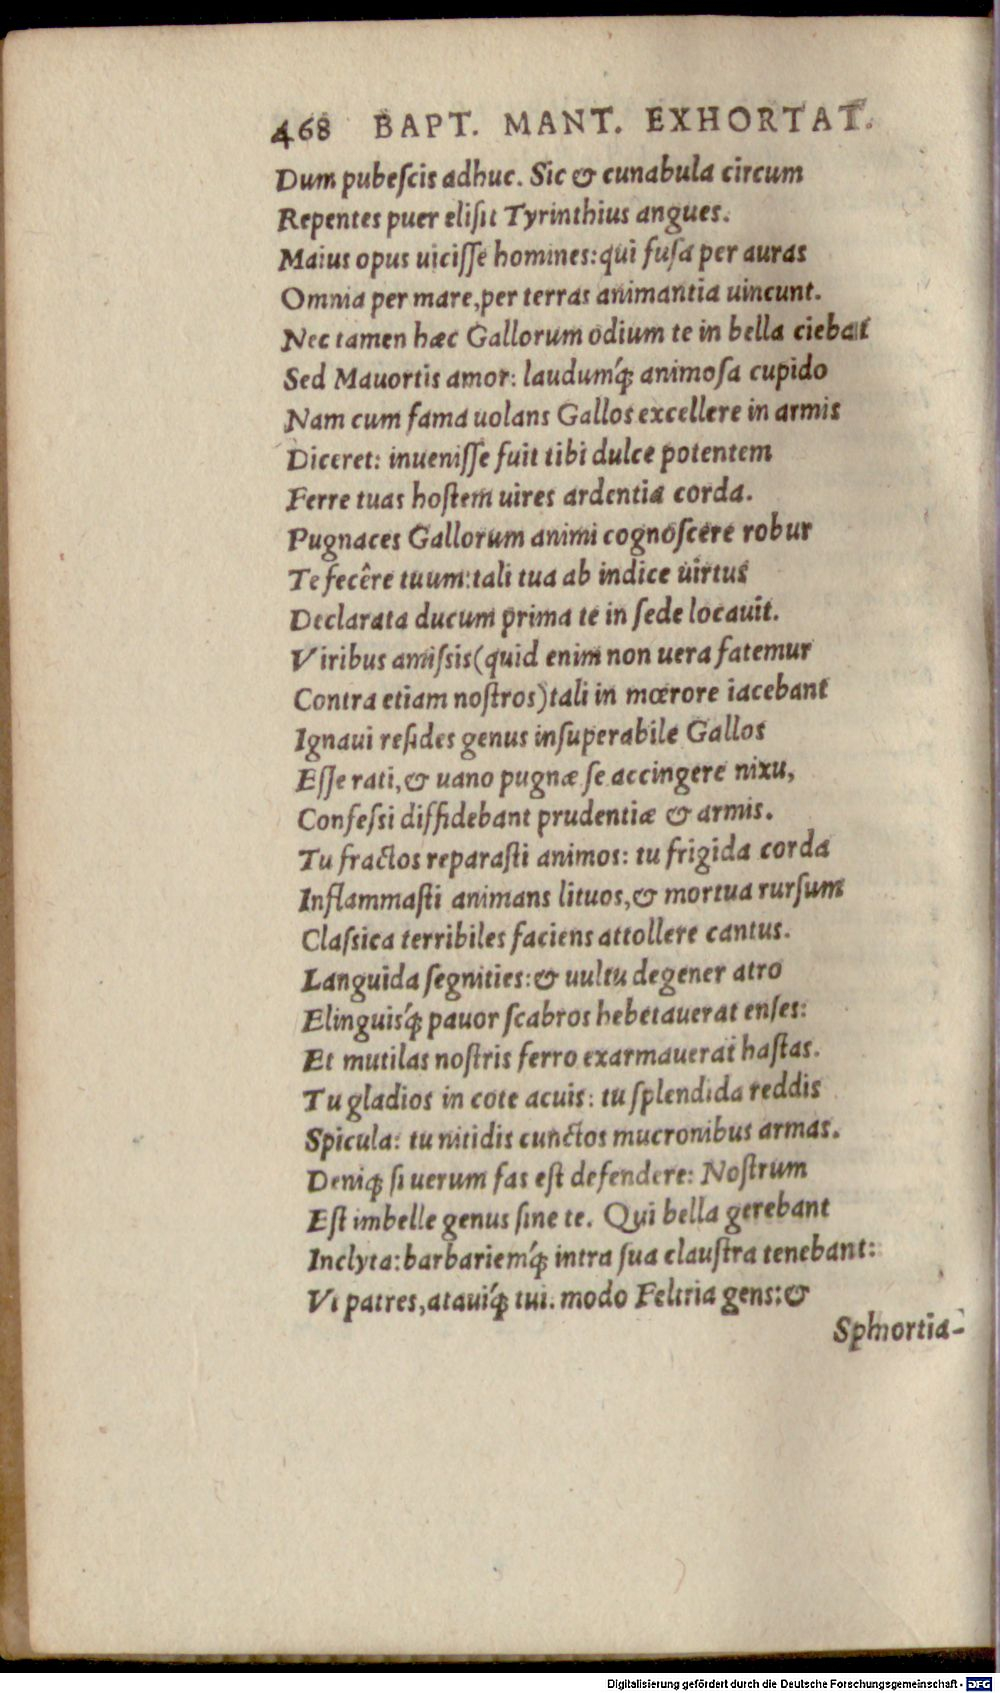 468 BAPT. MANT. EXHORTAT.
Dum pubeſcis adhuc. Sic & cunabula circum
Repentes puer eliſit Tyrinthius angues.
Maius opus uiciſſe homines: qui fuſa per auras
Omnia per mare, per terras animantia uincunt.
Nec tamen hæc Gallorum odium te in bella ciebat
Sed Mauortis amor: laudumq́; animoſa cupido
Nam cum fama uolans Gallos excellere in armis
Diceret: inueniſſe fuit tibi dulce potentem
Ferre tuas hoſtem uires ardentia corda.
Pugnaces Gallorum animi cognoſcere robur
Te fecêre tuum: tali tua ab indice uirtus
Declarata ducum prima te in ſede locauit.
Viribus amiſsis (quid enim non uera fatemur
Contra etiam noſtros) tali in mœrore iacebant
Ignaui reſides genus inſuperabile Gallos
Eſſe rati, & uano pugnæ ſe accingere nixu,
Confeſsi diffidebant prudentiæ & armis.
Tu fractos reparaſti animos: tu frigida corda
Inflammaſti animans lituos, & mortua rurſum
Claſsica terribiles faciens attollere cantus.
Languida ſegnities: & uultu degener atro
Elinguisq́; pauor ſcabros hebetauerat enſes:
Et mutilas noſtris ferro exarmauerat haſtas.
Tu gladios in cote acuis: tu ſplendida reddis
Spicula: tu nitidis cunctos mucronibus armas.
Deniq; ſi uerum fas eſt defendere: Noſtrum
Eſt imbelle genus ſine te. Qui bella gerebant
Inclyta: barbariemq́; intra ſua clauſtra tenebant:
Vt patres, atauiq́; tui. modo Feltria gens: &
Sphortia-
Digitalisierung gefördert durch die Deutsche Forschungsgemeinschaft - DFG